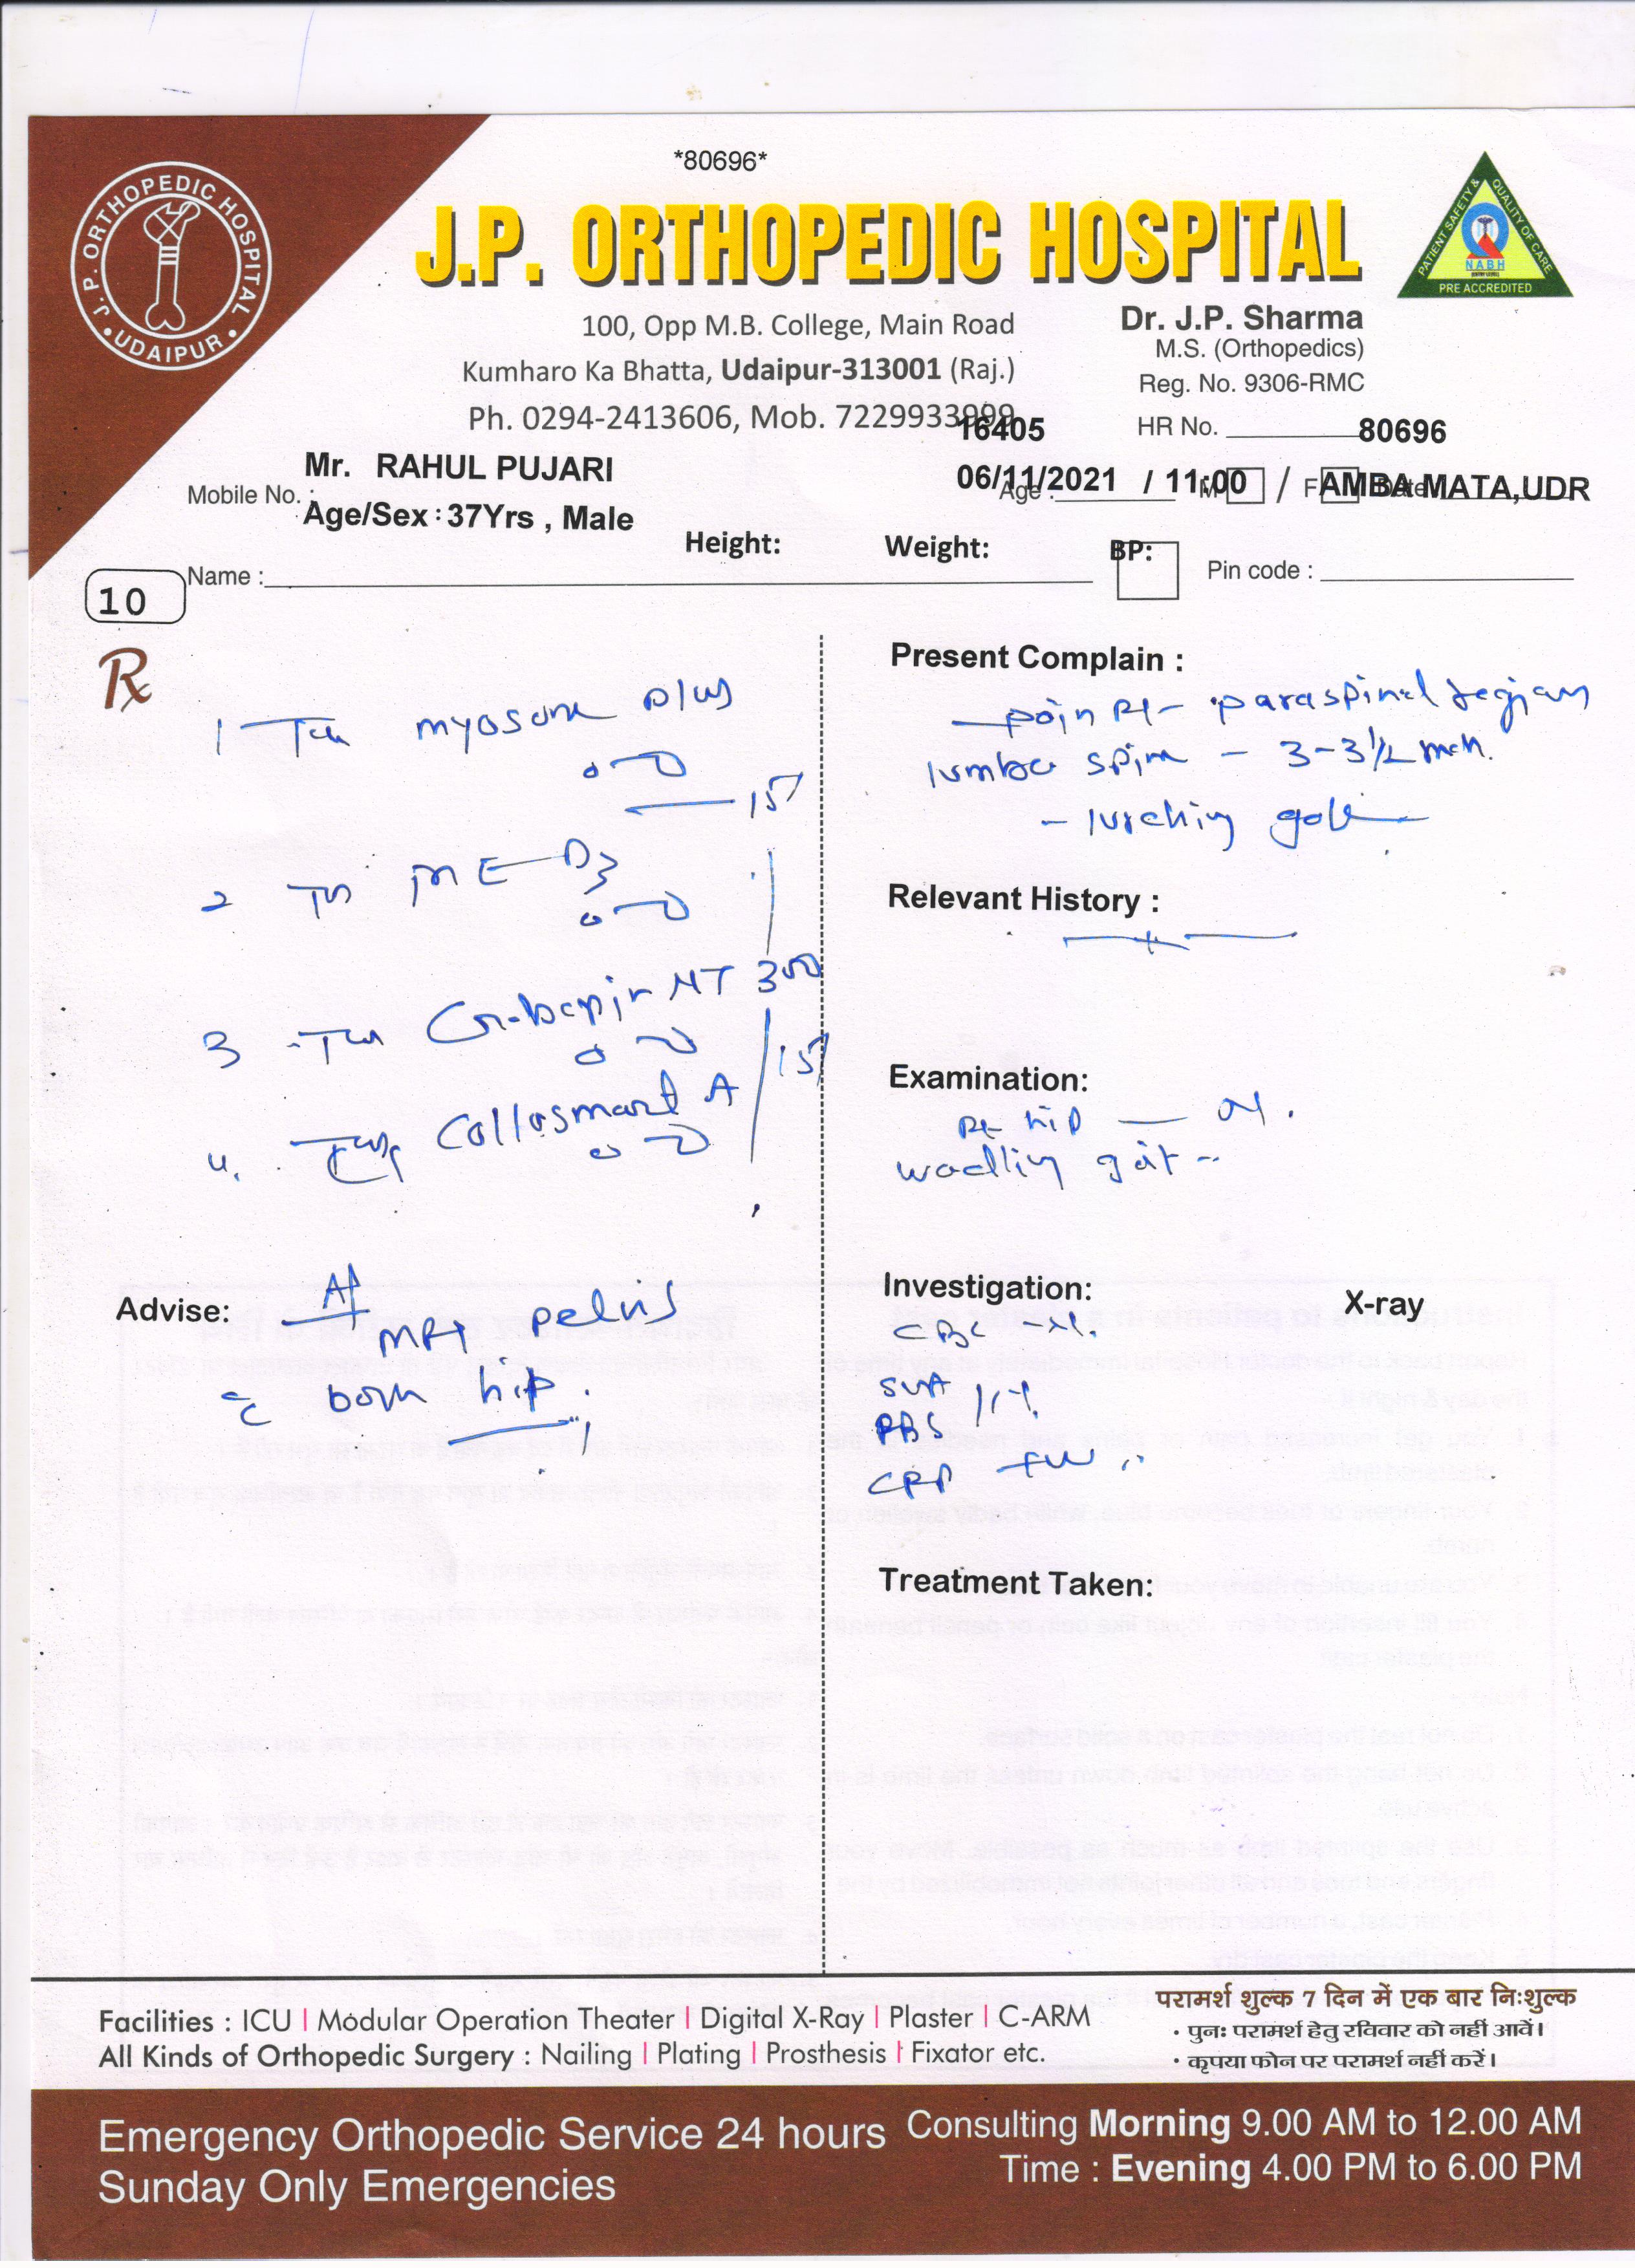 *80696*
J.P. ORTHOPEDIC HOSPITAL
J. P. ORTHOPEDIC HOSPITAL
• UDAIPUR •
PATIENT SAFETY & QUALITY OF CARE
NABH
PRE ACCREDITED
100, Opp M.B. College, Main Road
Kumharo Ka Bhatta, Udaipur-313001 (Raj.)
Ph. 0294-2413606, Mob. 7229933999
Dr. J.P. Sharma
M.S. (Orthopedics)
Reg. No. 9306-RMC
16405
HR No. 80696
Mr. RAHUL PUJARI
06/11/2021 / 11:00
AMBA MATA,UDR
Mobile No. :
Age : M / F Date
Age/Sex : 37Yrs , Male
Height: Weight: BP:
Name : Pin code :
10
Rx
1 myosone plus
15
2 M E D3
3 Gabapin NT 300
15
4. Collosmart A
Advise:
MRI pelvis
c̄ both hip.
Present Complain :
- pain Rt- paraspinal region
lumbar spine - 3-3½ mth.
- lurching gait
Relevant History :
Examination:
Rt hip
waddling gait
Investigation: X-ray
CBC
SUA
RBS
CRP
Treatment Taken:
Facilities : ICU | Modular Operation Theater | Digital X-Ray | Plaster | C-ARM
All Kinds of Orthopedic Surgery : Nailing | Plating | Prosthesis | Fixator etc.
परामर्श शुल्क 7 दिन में एक बार निःशुल्क
• पुनः परामर्श हेतु रविवार को नहीं आवें।
• कृपया फोन पर परामर्श नहीं करें।
Emergency Orthopedic Service 24 hours
Sunday Only Emergencies
Consulting Morning 9.00 AM to 12.00 AM
Time : Evening 4.00 PM to 6.00 PM